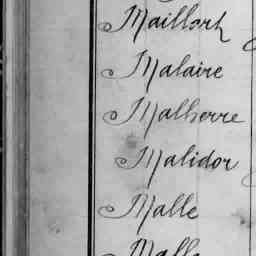 Maillart
Malaire
Malherre
Malidor
Malle
Malle